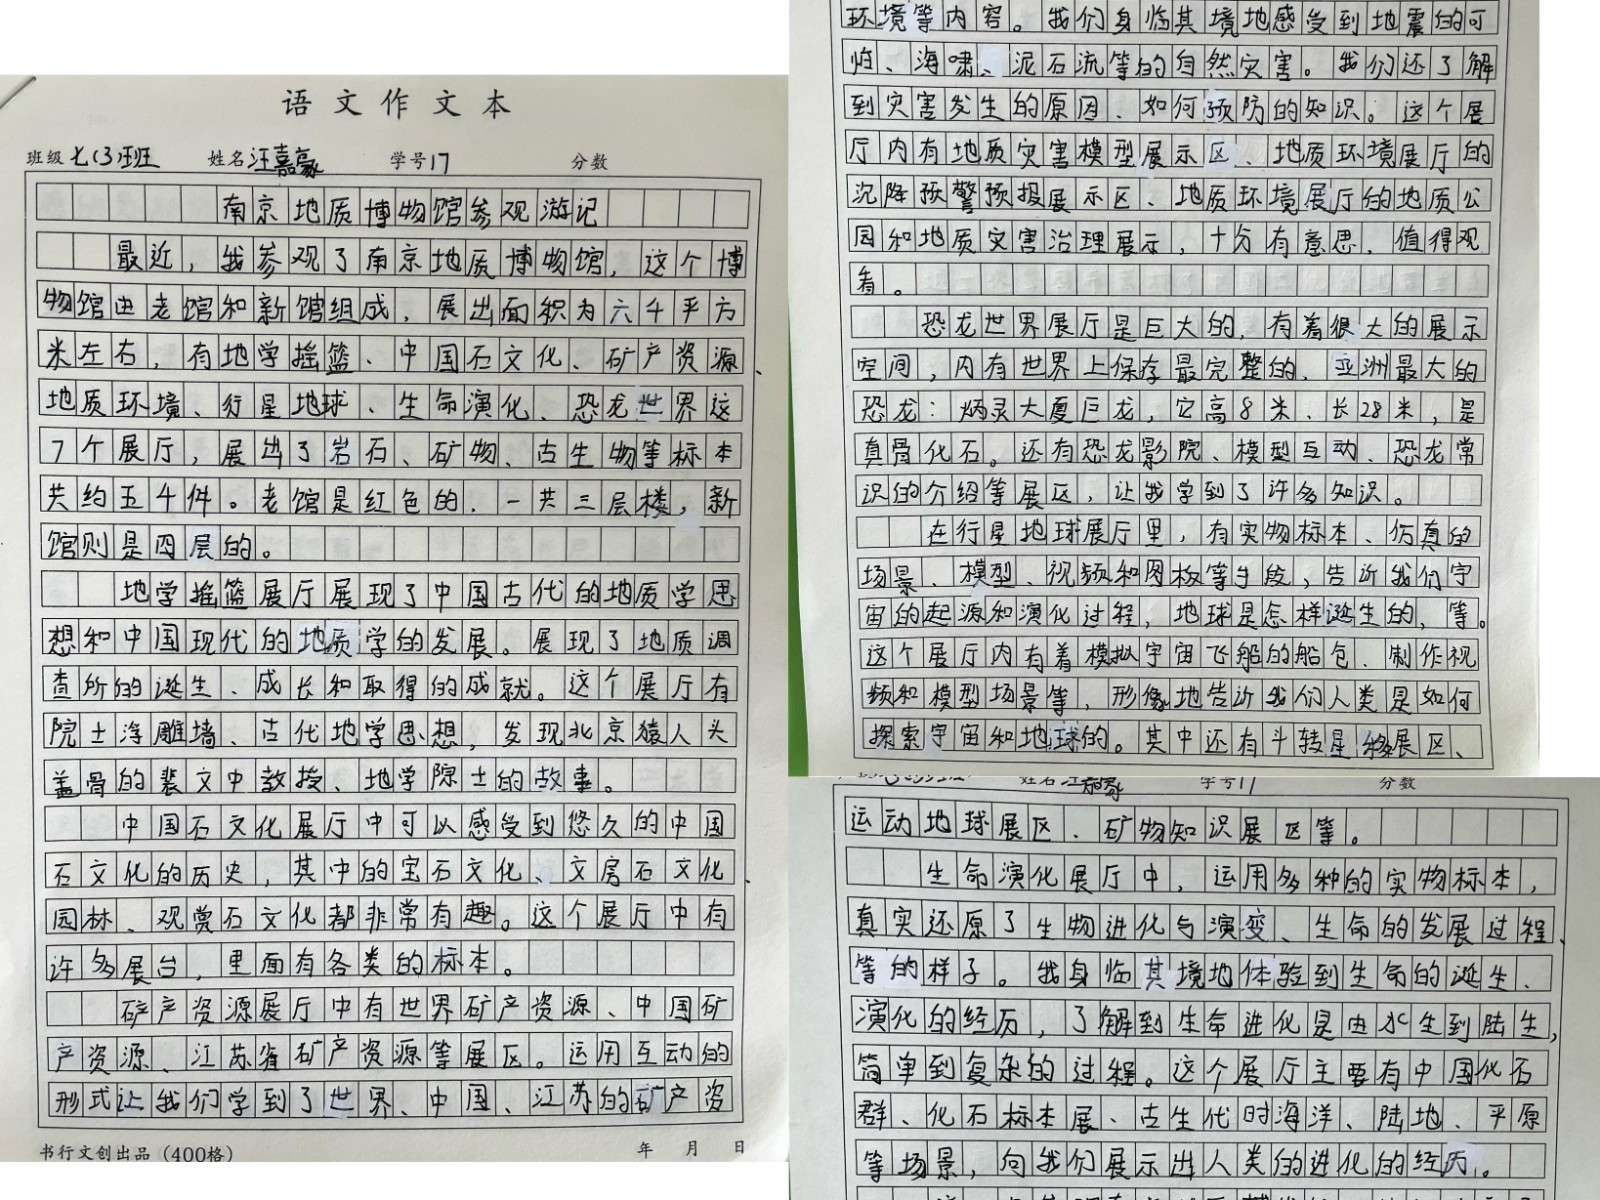 语文作文本
班级七(3)班 姓名汪嘉豪 学号17 分数
南京地质博物馆参观游记
最近，我参观了南京地质博物馆，这个博
物馆由老馆和新馆组成，展出面积为六千平方
米左右，有地学摇篮、中国石文化、矿产资源、
地质环境、行星地球、生命演化、恐龙世界这
7个展厅，展出了岩石、矿物、古生物等标本
共约五千件。老馆是红色的，一共三层楼，新
馆则是四层的。
地学摇篮展厅展现了中国古代的地质学思
想和中国现代的地质学的发展。展现了地质调
查所的诞生、成长和取得的成就。这个展厅有
院士浮雕墙、古代地学思想，发现北京猿人头
盖骨的裴文中教授、地学院士的故事。
中国石文化展厅中可以感受到悠久的中国
石文化的历史，其中的宝石文化、文房石文化、
园林、观赏石文化都非常有趣。这个展厅中有
许多展台，里面有各类的标本。
矿产资源展厅中有世界矿产资源、中国矿
产资源、江苏省矿产资源等展区。运用互动的
形式让我们学到了世界、中国、江苏的矿产资
书行文创出品（400格） 年 月 日
环境等内容。我们身临其境地感受到地震的可
怕、海啸、泥石流等的自然灾害。我们还了解
到灾害发生的原因、如何预防的知识。这个展
厅内有地质灾害模型展示区、地质环境展厅的
沉降预警预报展示区、地质环境展厅的地质公
园和地质灾害治理展示，十分有意思，值得观
看。
恐龙世界展厅是巨大的，有着很大的展示
空间，内有世界上保存最完整的、亚洲最大的
恐龙：炳灵大夏巨龙，它高8米、长28米，是
真骨化石。还有恐龙影院、模型互动、恐龙常
识的介绍等展区，让我学到了许多知识。
在行星地球展厅里，有实物标本、仿真的
场景、模型、视频和图板等手段，告诉我们宇
宙的起源和演化过程，地球是怎样诞生的，等。
这个展厅内有着模拟宇宙飞船的船包、制作视
频和模型场景等，形像地告诉我们人类是如何
探索宇宙和地球的。其中还有斗转星移展区、
姓名汪嘉豪 学号17 分数
运动地球展区、矿物知识展区等。
生命演化展厅中，运用多种的实物标本，
真实还原了生物进化与演变、生命的发展过程、
等的样子。我身临其境地体验到生命的诞生、
演化的经历，了解到生命进化是由水生到陆生，
简单到复杂的过程。这个展厅主要有中国化石
群、化石标本展、古生代时海洋、陆地、平原
等场景，向我们展示出人类的进化的经历。